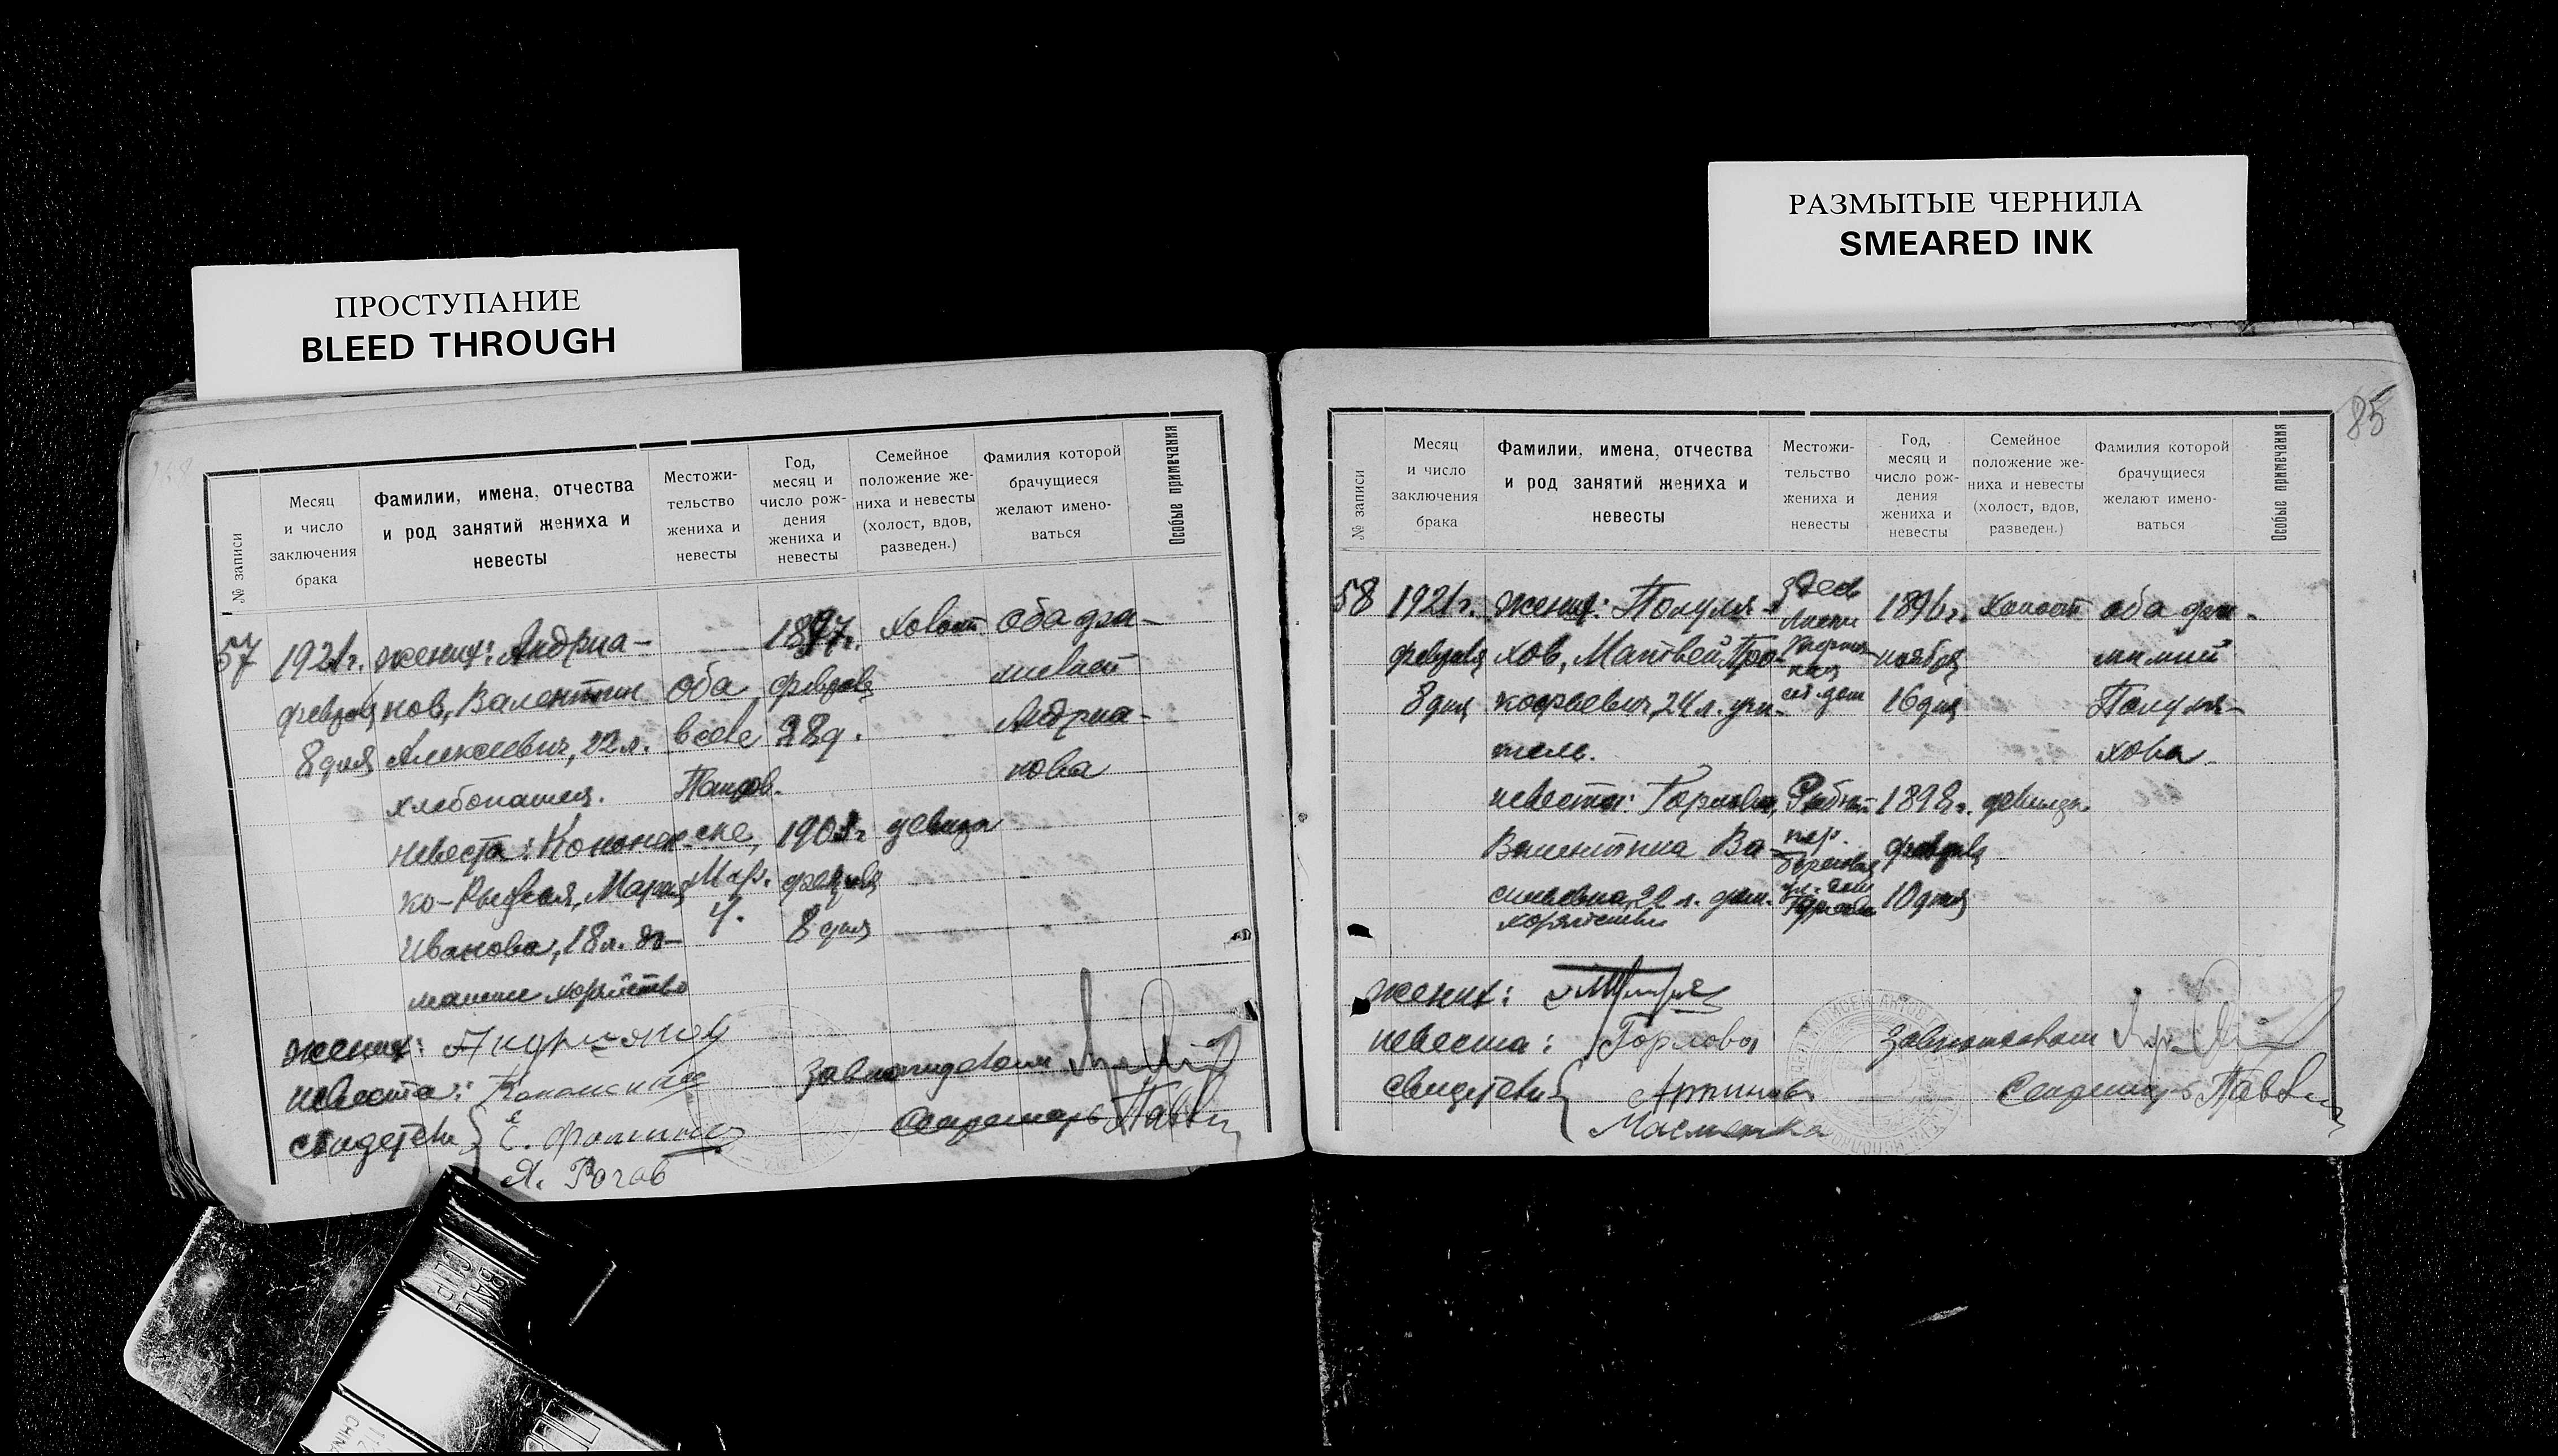 ПРОСТУПАНИЕ
BLEED THROUGH
РАЗМЫТЫЕ ЧЕРНИЛА
SMEARED INK
№ записи
Месяц
и число
заключения
брака
Фамилии, имена, отчества
и род занятий жениха и
невесты
Местожи-
тельство
жениха и
невесты
Год,
месяц и
число рож-
дения
жениха и
невесты
Семейное
положение же-
ниха и невесты
(холост, вдов,
разведен.)
Фамилия которой
брачущиеся
желают имено-
ваться
Особые примечания
57
1921г.
февраля
8 дня
жених: Андриа-
нов, Валентин
Алексеевич, 22 л.
хлебопашец.
невеста: Кононен-
ко-
Мария
Иванова, 18 л. до-
машн. хозяйство
оба
в селе
1897г.
февраля
28 д.
190 г.
февраля
8 дня
холост
девица
оба фа-
милией
Андриа-
нова
жених: Андриянов
невеста:
свидетели
Я. Рогав
Завподотделом
Секретарь
85
№ записи
Месяц
и число
заключения
брака
Фамилии, имена, отчества
и род занятий жениха и
невесты
Местожи-
тельство
жениха и
невесты
Год,
месяц и
число рож-
дения
жениха и
невесты
Семейное
положение же-
ниха и невесты
(холост, вдов,
разведен.)
Фамилия которой
брачущиеся
желают имено-
ваться
Особые примечания
58
1921г.
февраля
8 дня
жених: Полуля-
хов, Матвей Про-
кофьевич, 24 л. учи-
тель.
невеста: Горлова,
Валентина Ва-
сильевна, 22 л. дом.
хозяйство
здесь
1896г.
ноября
16 дня
1898г.
февраля
10 дня
холост
девица
оба фа-
милией
Полуля-
хова
жених:
невеста: Горлова
свидетели
Масленка
Завподотделом
Секретарь